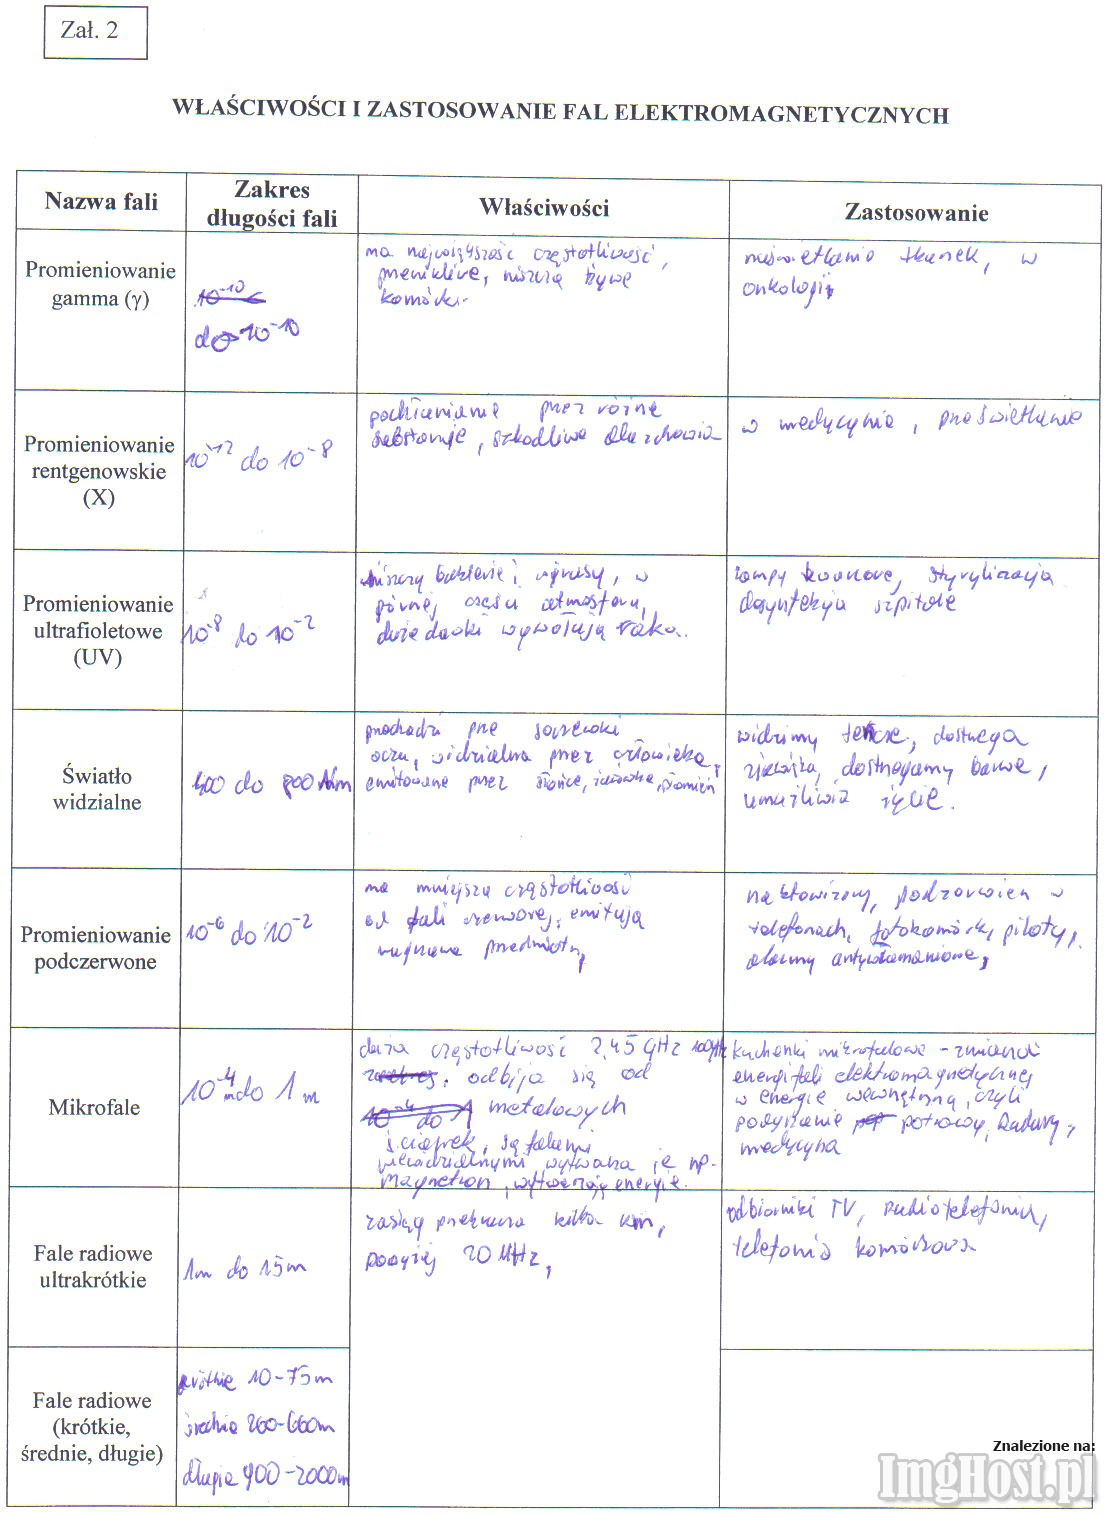 Zał. 2
WŁAŚCIWOŚCI I ZASTOSOWANIE FAL ELEKTROMAGNETYCZNYCH
Nazwa fali
Zakres
długości fali
Właściwości
Zastosowanie
Promieniowanie
gamma (γ)
10⁻¹⁰
do 10⁻¹⁰
ma największość częstotliwość,
przenikliwe, niszczą żywe
komórki.
naświetlanie tkanek, w
onkologii
Promieniowanie
rentgenowskie
(X)
10⁻¹² do 10⁻⁸
pochłanianie przez różne
substancje, szkodliwe dla zdrowia
w medycynie, prześwietlanie
Promieniowanie
ultrafioletowe
(UV)
10⁻⁸ do 10⁻²
niszczy bakterie i wirusy, w
górnej części atmosfery,
duże dawki wywołują raka.
lampy kwarcowe, styrylizacja
dezynfekcja szpitale
Światło
widzialne
400 do 800 Nm
przechodzi prze soczewki
oczu, widzialna przez człowieka,
emitowane przez słońce, żarówka, płomień
widzimy tęcze, dostrzega
zjawiska, dostrzegamy barwę,
umożliwia życie.
Promieniowanie
podczerwone
10⁻⁶ do 10⁻²
ma mniejszą częstotliwość
od fali czerwonej, emitują
nagrzane przedmioty,
noktowizory, podzerwien w
telefonach, fotokomórki, piloty,
alarmy antywłamaniowe,
Mikrofale
10⁻⁴ m do 1 m
duża częstotliwość 2,45 GHz 100GHz
odbija się od
10⁻⁴ do 1 metalowych
ścianek, są falami
niewidzialnymi wytwarza je np.
magnetron, wytwarzają energie.
kuchenki mikrofalowe - zmiana
energi fali elektromagnetycznej
w energie wewnętrzną, czyli
podgrzanie potrawy, Radary,
medycyna
Fale radiowe
ultrakrótkie
1m do 15m
zasięg przekracza kilka km,
powyżej 20 MHz,
odbiorniki TV, radiotelefonia,
telefonia komórkowa
Fale radiowe
(krótkie,
średnie, długie)
krótkie 10-75m
średnie 200-600m
długie 900-2000m
Znalezione na:
ImgHost.pl